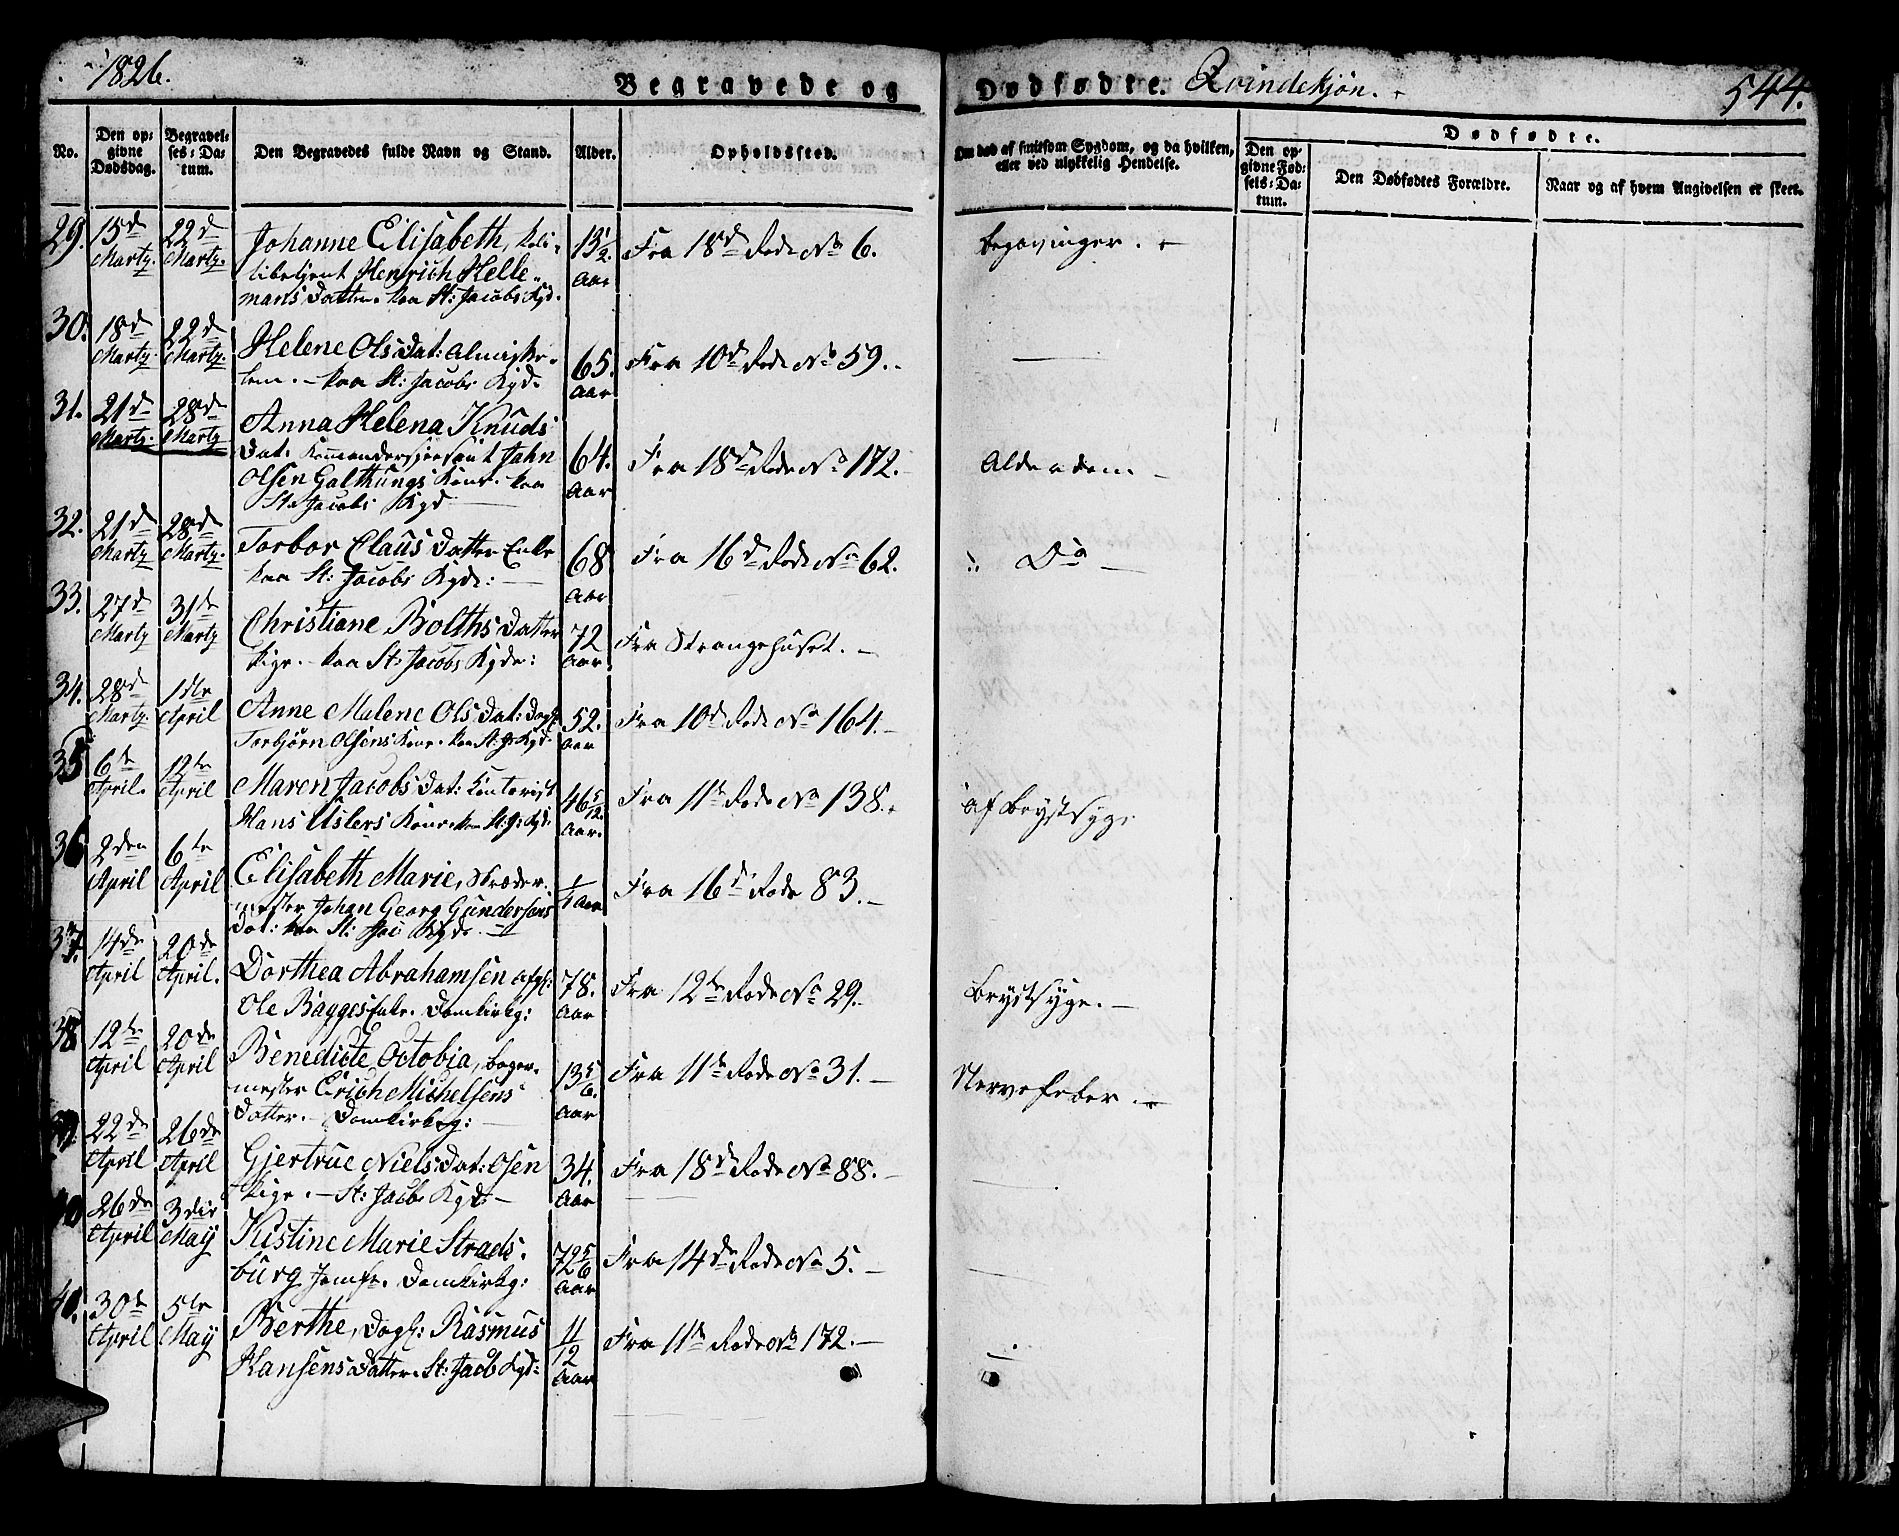 1826.
Begravede og Dødfødte. Qvindekjøn.
544.
No.
Den opgivne Dødsdag.
Begravelses-Datum.
Den Begravedes fulde Navn og Stand.
Alder.
Opholdssted.
Om død af smitsom Sygdom, og da hvilken, eller ved ulykkelig Hendelse.
Dødfødte.
Den opgivne Fødsels-Datum.
Den Dødfødtes Forældre.
Naar og af hvem Angivelsen er skeet.
29. 15d Martz. 22d Martz. Johanne Elisabeth, 13 1/2 Aar Fra 18d Rode No 6.
Henrich Hellemans Datter. paa St: Jacobs Kgd.
30. 18d Martz. 22d Martz. Helene Olsdat: Almisselem. – paa St: Jacobs Kgd. 65. Aar Fra 10d Rode No 59. –
31. 21d Martz. 28d Martz. Anna Helena Knuds
Dat: John
Olsen Galthungs Kone. paa
St: Jacobs Kgd 64. Aar Fra 18d Rode No 172. – Alderdom. –
32. 21d Martz 28d Martz. Torbor Claus Datter Enke
paa St: Jacobs Kgd: – 68 Aar Fra 16d Rode No 62. Do –
33. 27d Martz 31te Martz Christiane Bolths Datter
Pige. – paa St: Jacobs Kgd: 72 Aar Fra Strangehuset. –
34. 28d Martz. 1ste April Anne Malene Olsdat: Dagl:
Torbjørn Olsens Kone. paa St: J: Kgd. 52. Aar Fra 10d Rode No 164. –
35 6te April. 12te April Maren Jacobs Dat: Contorist
Hans Uslers Kone. paa St: J: Kgd. 46 5/12 Aar. Fra 11te Rode No 138. af Brystsyge
36 2den April 6te April Elisabeth Marie, Skrædermester Johan Georg Gundersens
Dat: paa St: Jac: Kgd. – Aar Fra 16d Rode 83. –
37. 14de April 20de April. Dorthea Abrahamsen afgl:
Ole Bagges Enke. Domkirkg: 78. Aar Fra 12te Rode No 29. – Brystsyge. –
38 12te April 20de April Benedicte Octobia, Bagermester Erich Michelsens
Datter. – Domkirkeg: 13 5/6. Aar Fra 11te Rode No 31. – Nervefeber. –
39. 22de April 26de April Gjertrue Niels Dat: Osen
Pige. – St: Jacobs Kgd: – 34. Aar Fra 18d Rode No 88. –
40 26de April 3die May Kistine Marie Stradsburg Jomfr. Domkirkg: 72 5/6 Aar Fra 14de Rode No 5. –
41. 30te April 5te May Berthe, Dagl: Rasmus
Hansens Datter. St: Jacob Kgd: 11/12 Aar Fra 11te Rode No 172. –